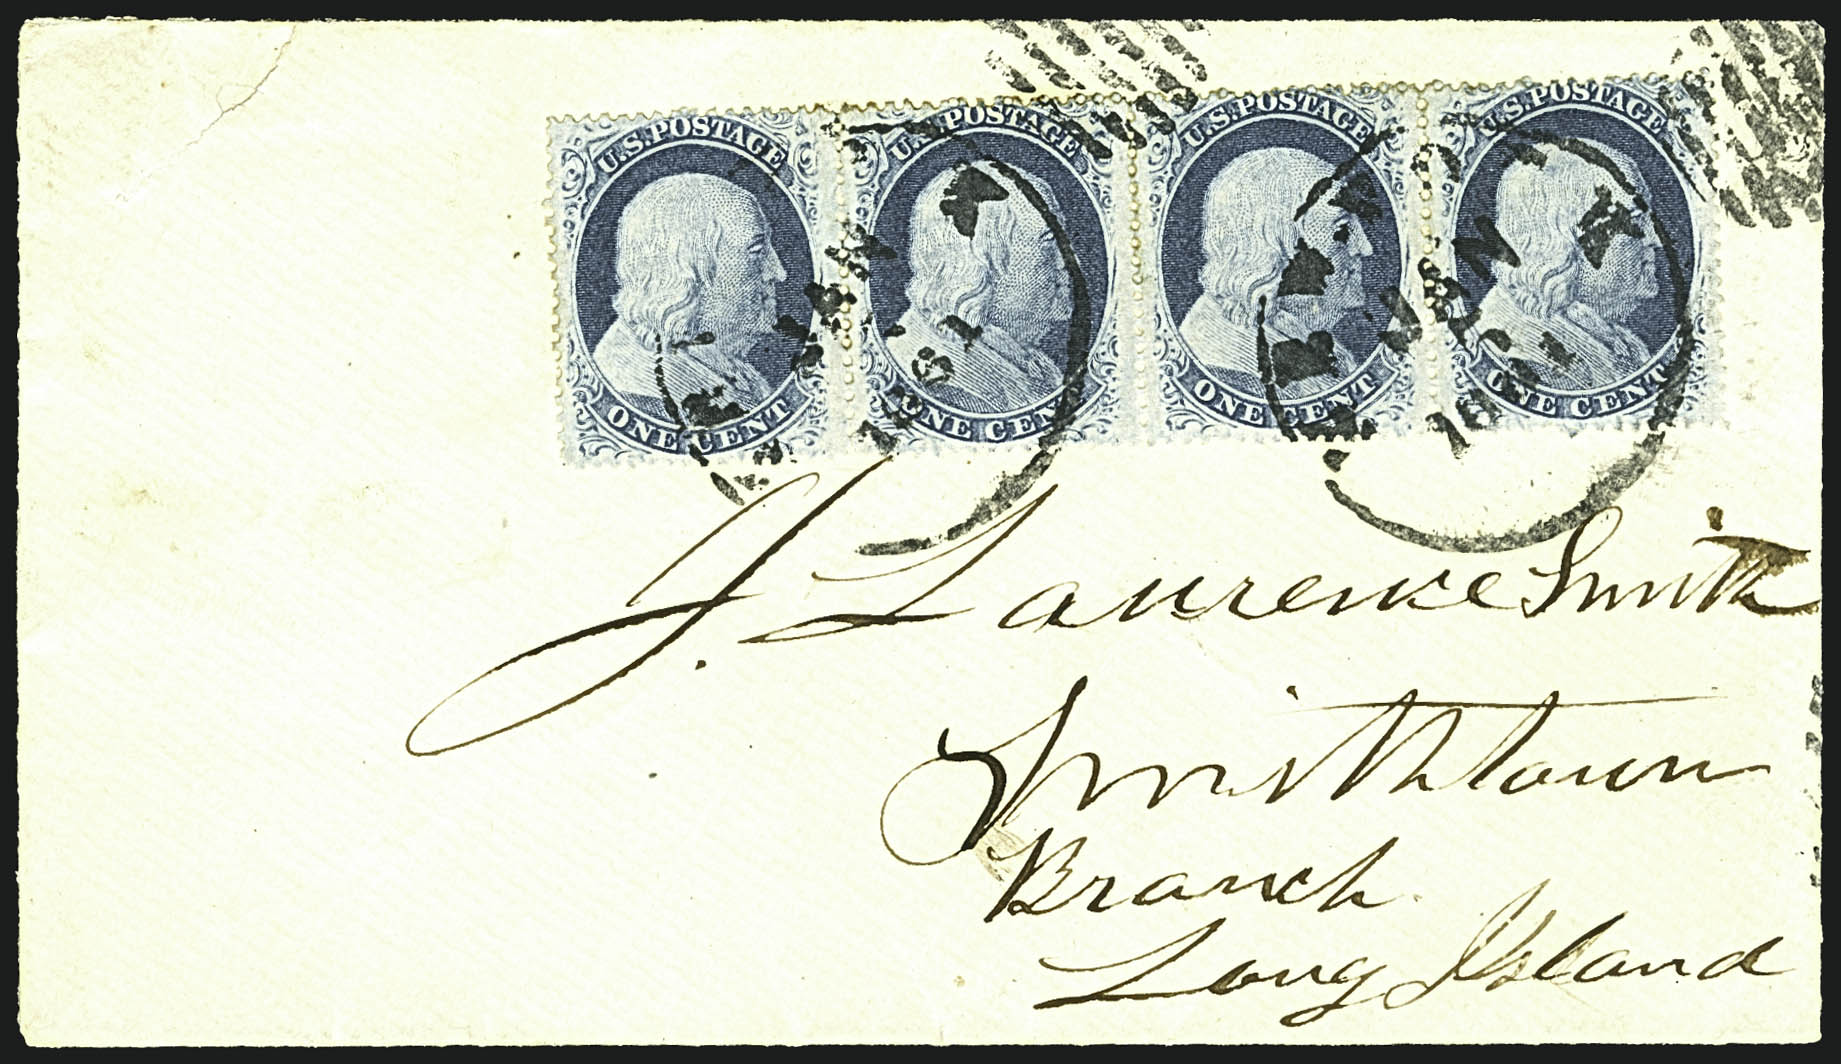 U.S. POSTAGE U.S. POSTAGE U.S. POSTAGE U.S. POSTAGE
JAN 1861 JAN 1861
ONE CENT ONE CENT ONE CENT ONE CENT
J. Laurence Smith
Smithtown
Branch
Long Island